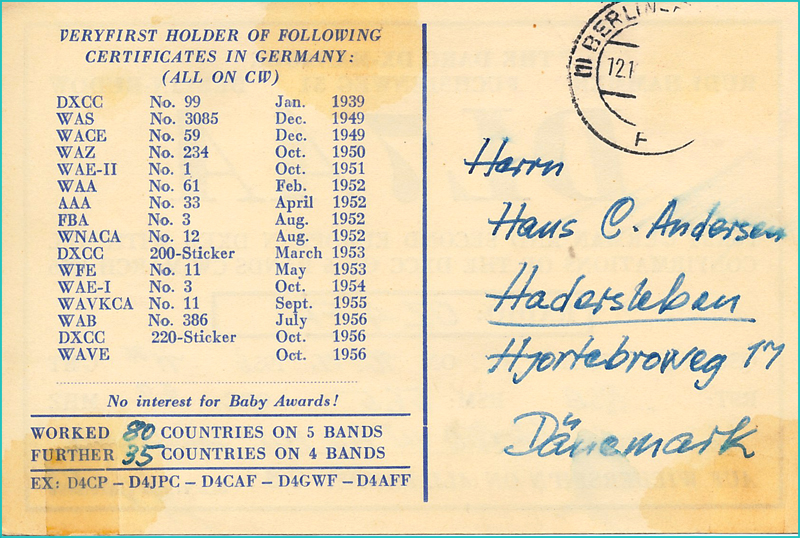 VERYFIRST HOLDER OF FOLLOWING
CERTIFICATES IN GERMANY:
(ALL ON CW)
DXCC No. 99 Jan. 1939
WAS No. 3085 Dec. 1949
WACE No. 59 Dec. 1949
WAZ No. 234 Oct. 1950
WAE-II No. 1 Oct. 1951
WAA No. 61 Feb. 1952
AAA No. 33 April 1952
FBA No. 3 Aug. 1952
WNACA No. 12 Aug. 1952
DXCC 200-Sticker March 1953
WFE No. 11 May 1953
WAE-I No. 3 Oct. 1954
WAVKCA No. 11 Sept. 1955
WAB No. 386 July 1956
DXCC 220-Sticker Oct. 1956
WAVE Oct. 1956
No interest for Baby Awards!
WORKED 80 COUNTRIES ON 5 BANDS
FURTHER 35 COUNTRIES ON 4 BANDS
EX: D4CP – D4JPC – D4CAF – D4GWF – D4AFF
(1) BERLIN
12.1
Herrn
Hans C. Andersen
Hadersleben
Hjortebroweg 17
Dänemark